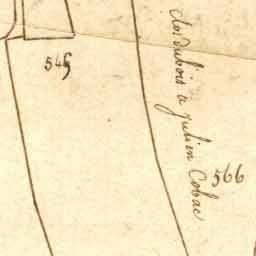 545
clos dubois a julien Cobac
566